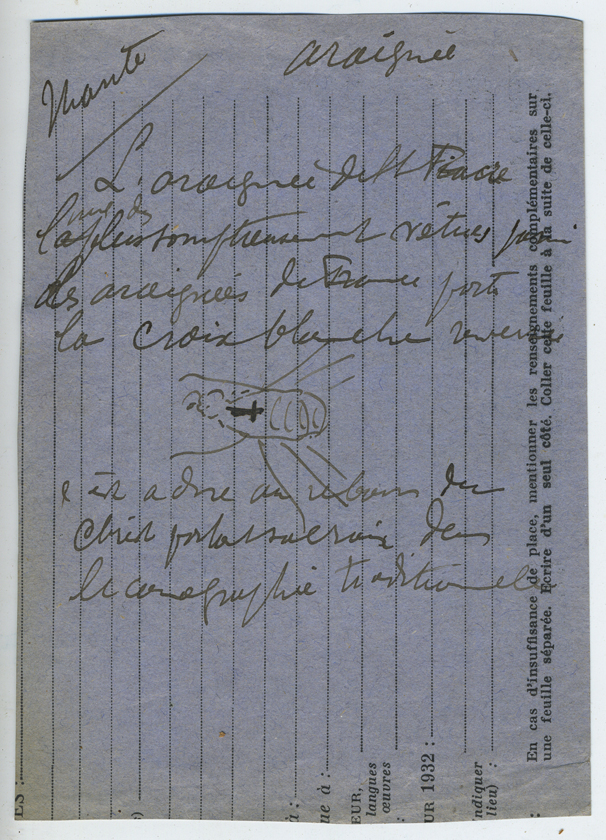 Mante
araignée
L'araignée de St Fiacre
une des
la plus somptueusement vêtues parmi
les araignées de France porte
la croix blanche renversée
c'est à dire au rebours du
Christ portant sa croix dans
l'iconographie traditionnelle
En cas d'insuffisance de place, mentionner les renseignements complémentaires sur
une feuille séparée. Écrire d'un seul côté. Coller cette feuille à la suite de celle-ci.
ES :
)
à :
ue à :
EUR,
langues
œuvres
UR 1932 :
ndiquer
lieu) :
: